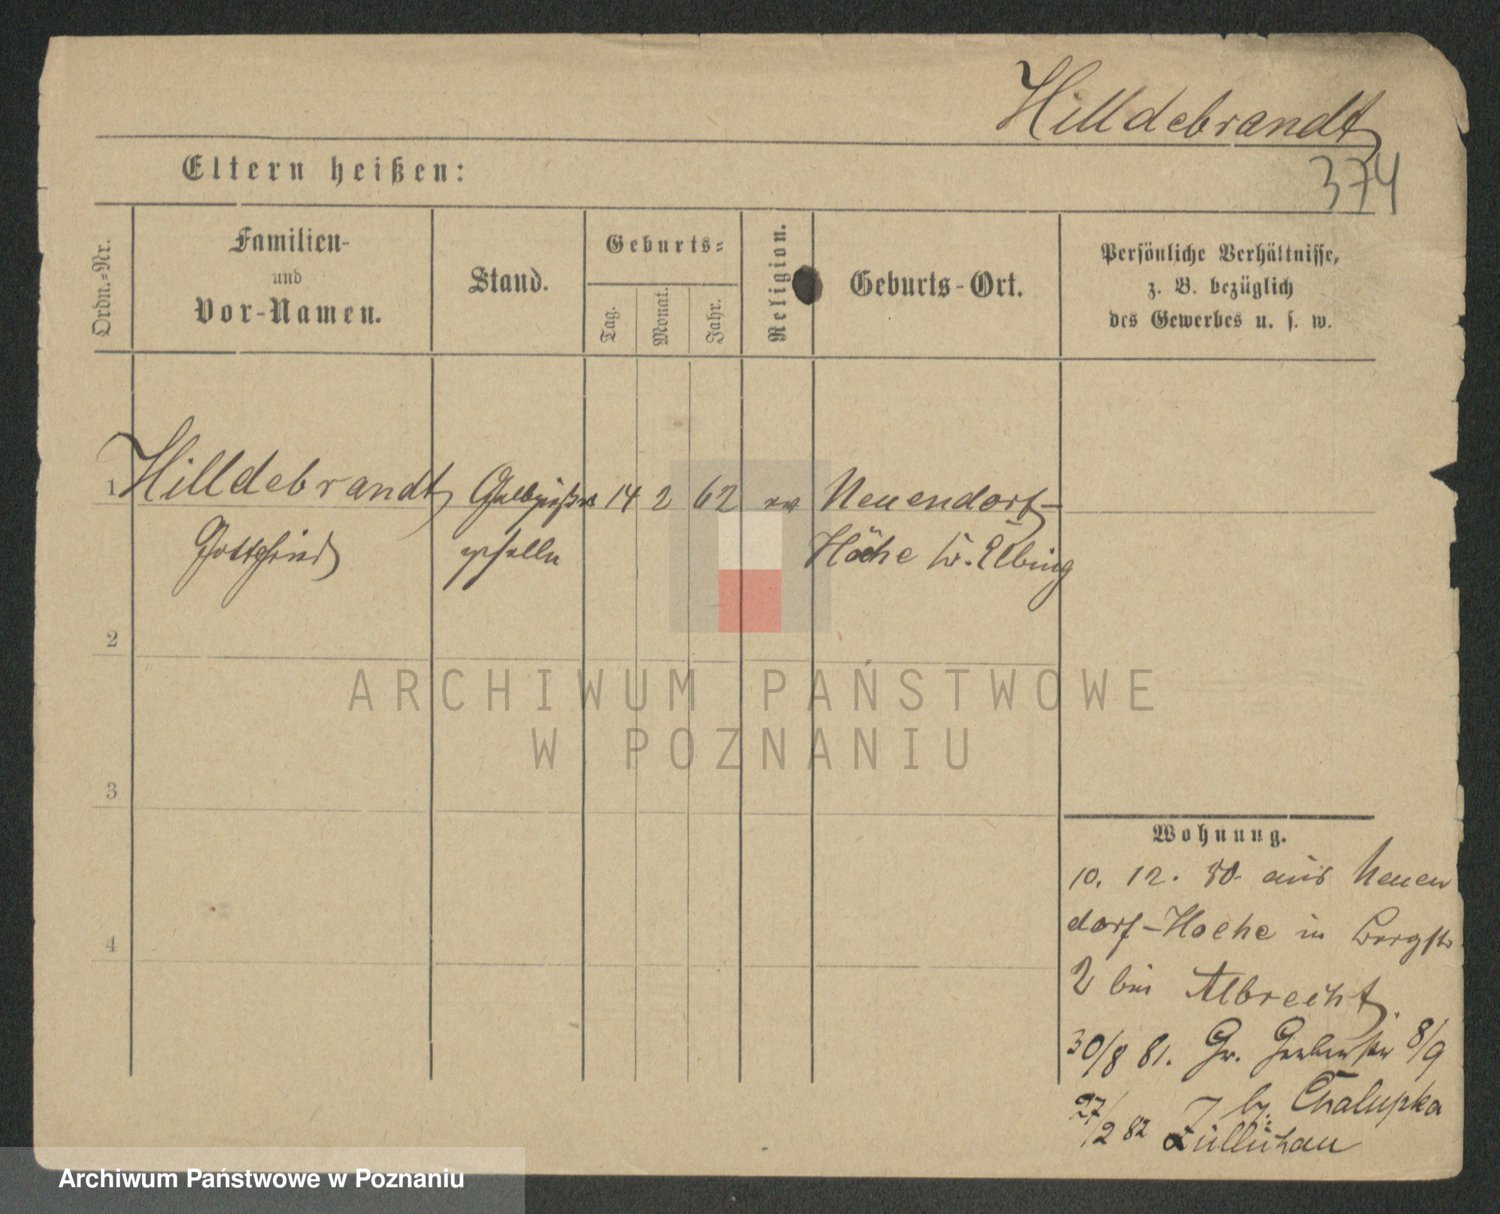 Hilldebrandt
374
Eltern heißen:
Ordn.-Nr.
Familien-
und
Vor-Namen.
Stand.
Geburts-
Tag.
Monat.
Jahr.
Religion.
Geburts-Ort.
Persönliche Verhältnisse,
z. B. bezüglich
des Gewerbes u. s. w.
1 Hilldebrandt Gelbgießer 14 2 62 ev Neuendorf-
Gottfried geselle Höhe Kr. Elbing
2
3
4
ARCHIWUM PAŃSTWOWE
W POZNANIU
Wohnung.
10. 12. 80. aus Neuen
dorf-Hoehe in Bergstr
2 bei Albrecht
30/8 81. Gr. Gerberstr 8/9
by. Chalupka
27/2 82 Züllichau
Archiwum Państwowe w Poznaniu